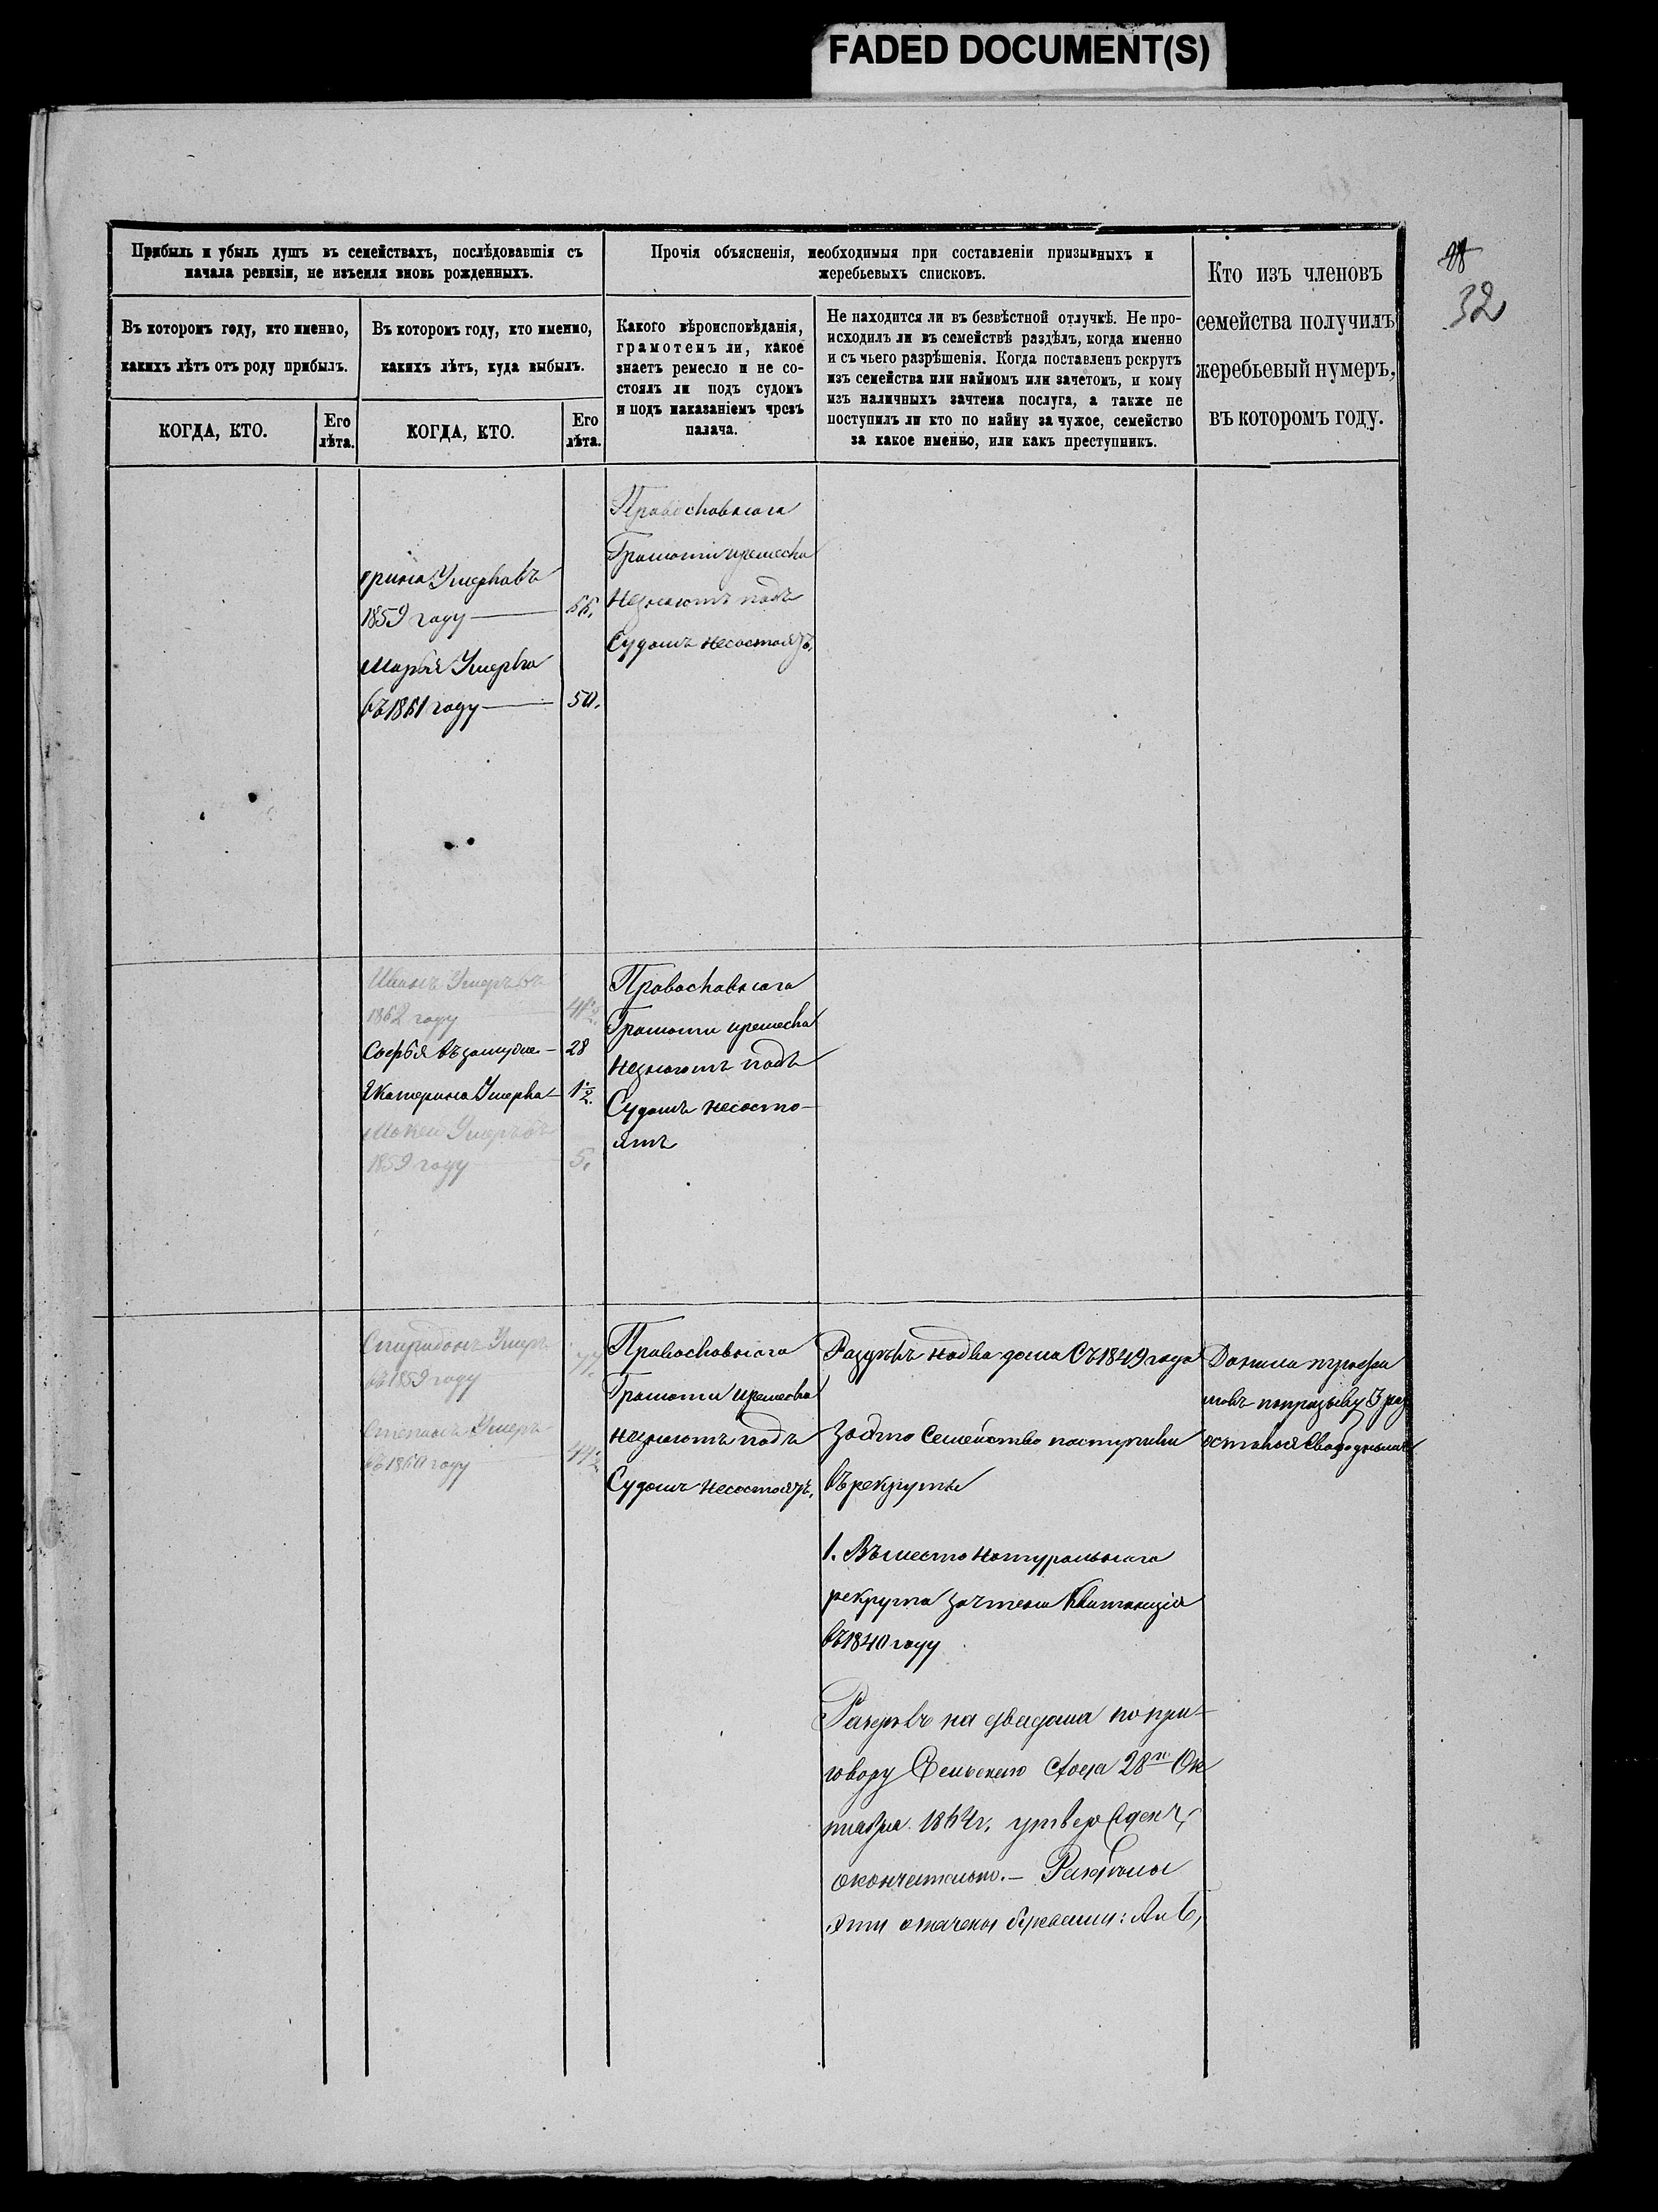 FADED DOCUMENT(S)
Прибыль и убыль душъ въ семействахъ, послѣдовавшія съ
начала ревизіи, не изъемля вновь рожденныхъ.
Прочія объясненія, необходимыя при составленіи призывныхъ и
жеребьевыхъ списковъ.
Кто изъ членовъ
семейства получилъ
жеребьевый нумеръ,
въ которомъ году.
32
Въ которомъ году, кто именно,
какихъ лѣтъ отъ роду прибылъ.
Въ которомъ году, кто именно,
какихъ лѣтъ, куда выбылъ.
Какого вѣроисповѣданія,
грамотенъ ли, какое
знаетъ ремесло и не со-
стоялъ ли подъ судомъ
и подъ наказаніемъ чрезъ
палача.
Не находится ли въ безвѣстной отлучкѣ. Не про-
исходилъ ли въ семействѣ раздѣлъ, когда именно
и съ чьего разрѣшенія. Когда поставленъ рекрутъ
изъ семейства или наймомъ или зачетомъ, и кому
изъ наличныхъ зачтена послуга, а также не
поступилъ ли кто по найму за чужое, семейство
за какое именно, или какъ преступникъ.
КОГДА, КТО.
Его
лѣта.
КОГДА, КТО.
Его
лѣта.
1859 году
Марья Умерла
году
50.
Православнаго
Грамоти иремесла
Незнаютъ подъ
Судомъ несостоятъ.
Иванъ Умеръ въ
1862 году
Софья въ замуже
28
Екатерина Умерла
1½.
Мокей Умеръ въ
1859 году
5.
Православнаго
Грамоти иремесла
незнаютъ подъ
Судомъ несосто-
ятъ
Спиридонъ Умеръ
въ 1859 году
77.
Степанъ Умеръ
въ 1860 году
Православнаго
Грамоти иремесла
незнаютъ подъ
Судомъ несостоятъ.
Раздѣлъ надва дома Съ 1849 года
Заэто Семейство поступили
въ рекруты
1. Въместо Натуральнаго
рекрута зачтена Квитанція
въ 1840 году
Раздѣлъ на два дома по при-
говору Сельскаго схода 28го Ок
тября 1864г. утвержденъ
окончательно. — Раздѣлы
эти означены буквами: А и Б,
Данила
попризыву 3 раз
остался Свободнымъ